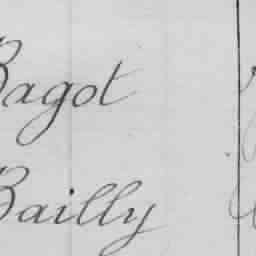 Bagot
Bailly